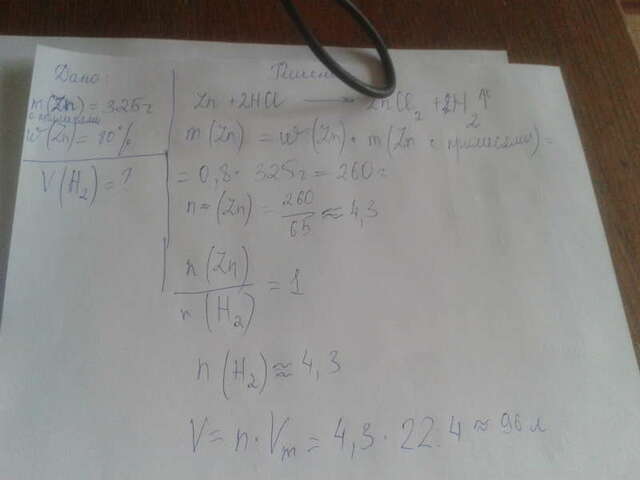 Дано:
m(Zn) = 325г
с примесями
w(Zn) = 80%
V(H₂) = ?
Решени
Zn + 2HCl → ZnCl₂ + H₂↑
m(Zn) = w(Zn) · m(Zn с примесями) =
= 0,8 · 325г = 260г
n = (Zn) = 260/65 ≈ 4,3
n(Zn)/n(H₂) = 1
n(H₂) ≈ 4,3
V = n · Vm = 4,3 · 22.4 ≈ 96 л